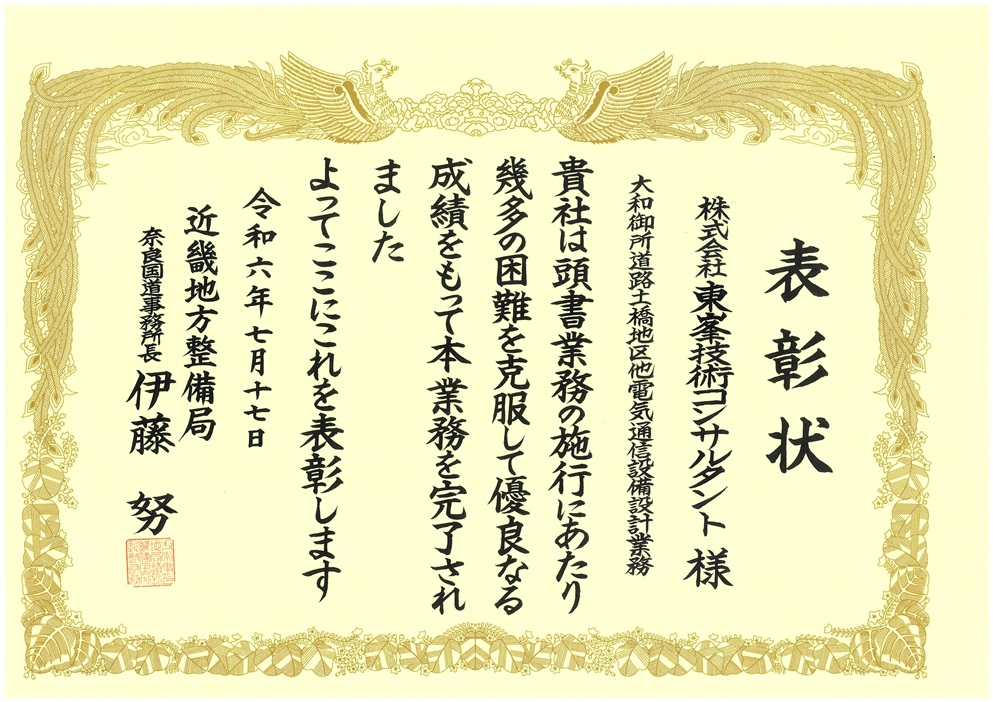 表彰状
株式会社東峯技術コンサルタント 様
大和御所道路土橋地区他電気通信設備設計業務
貴社は頭書業務の施行にあたり
幾多の困難を克服して優良なる
成績をもって本業務を完了され
ました
よってここにこれを表彰します
令和六年七月十七日
近畿地方整備局
奈良国道事務所長 伊藤 努